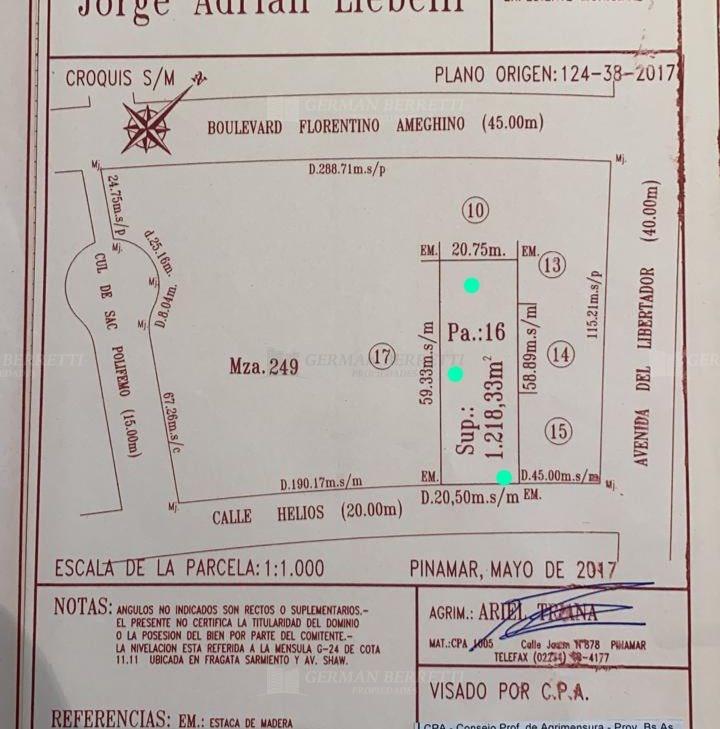 Jorge Adrián Liebelli
CROQUIS S/M
N
PLANO ORIGEN:124-38-2017
BOULEVARD FLORENTINO AMEGHINO (45.00m)
Mj.
D.288.71m.s/p
Mj.
24.75m.s/p
10
AVENIDA DEL LIBERTADOR (40.00m)
Mj.
d.25.16m.
EM. 20.75m. EM.
13
CUL DE SAC POLIFEMO (15.00m)
Mj.
D.8.04m.
Mj.
115.21m.s/p
Pa.:16
59.33m.s/m
58.89m.s/m
14
Mza.249
17
Sup.: 1.218,33m²
67.26m.s/c
15
D.190.17m.s/m
EM.
D.45.00m.s/m
Mj.
Mj.
D.20,50m.s/m EM.
CALLE HELIOS (20.00m)
ESCALA DE LA PARCELA:1:1.000
PINAMAR, MAYO DE 2017
NOTAS: ANGULOS NO INDICADOS SON RECTOS O SUPLEMENTARIOS.-
EL PRESENTE NO CERTIFICA LA TITULARIDAD DEL DOMINIO
O LA POSESION DEL BIEN POR PARTE DEL COMITENTE.-
LA NIVELACION ESTA REFERIDA A LA MENSULA G-24 DE COTA
11.11 UBICADA EN FRAGATA SARMIENTO Y AV. SHAW.
AGRIM.: ARIEL TRIANA
MAT.:CPA 1005 Calle Jason N°878 PINAMAR
TELEFAX
VISADO POR C.P.A.
REFERENCIAS: EM.: ESTACA DE MADERA
CPA - Consejo Prof. de Agrimensura - Prov. Bs.As.
GERMAN BERRETTI
PROPIEDADES